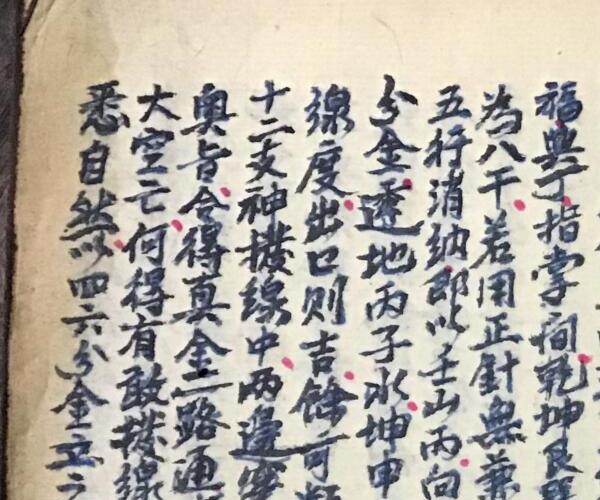 福與丁指掌間乾坤艮
為八干若用正針無兼
五行消納即以壬山丙向
分金透地丙子水坤申
線度出口則吉餘可
十二支神撥線中兩邊
奥旨令得真金二路通
大空亡何得有敢撥線
悉自然以四六分金立